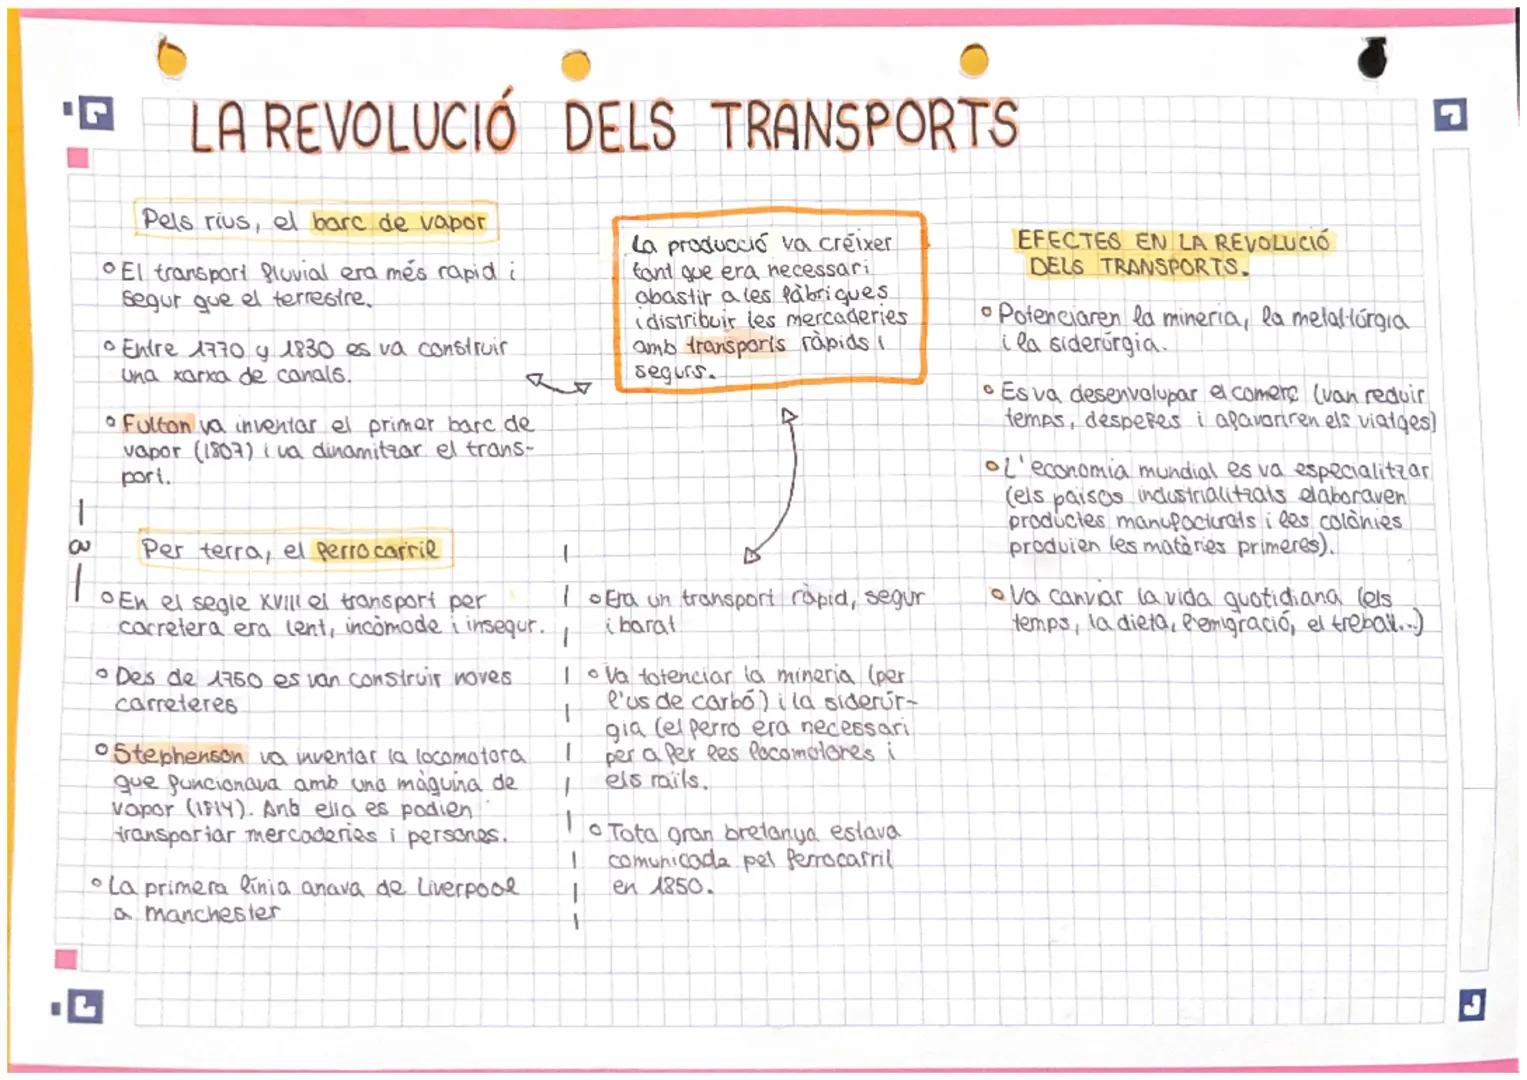 LA REVOLUCIÓ DELS TRANSPORTS
Pels rius, el barc de vapor
El transport fluvial era més rapid i
segur que el terrestre.
Entre 1770 y 1830 es va construir
una xarxa de canals.
Fulton va inventar el primer barc de
vapor (1807) i va dinamitzar el trans-
port.
La producció va créixer
tant que era necessari
abastir a les fàbriques
i distribuir les mercaderies
amb transports ràpids i
segurs.
Per terra, el ferrocarril
En el segle XVIII el transport per
carretera era lent, incòmode i insegur.
Des de 1750 es van construir noves
carreteres
Stephenson va inventar la locomotora
que funcionava amb una màquina de
vapor (1814). Amb ella es podien
transportar mercaderies i persones.
La primera línia anava de Liverpool
a manchester
Era un transport ràpid, segur
i barat
Va totenciar la mineria (per
l'us de carbó) i la siderúr-
gia (el ferro era necessari
per a fer les locomotores i
els raïls.
Tota gran bretanya estava
comunicada pel ferrocarril
en 1850.
EFECTES EN LA REVOLUCIÓ
DELS TRANSPORTS.
Potenciaren la mineria, la metal·lúrgia
i la siderúrgia.
Es va desenvolupar el comerç (van reduir
temps, despeses i afavoriren els viatges)
L'economia mundial es va especialitzar
(els països industrialitzats elaboraven
productes manufacturats i les colònies
produien les matèries primeres).
Va canviar la vida quotidiana (els
temps, la dieta, l'emigració, el treball...)